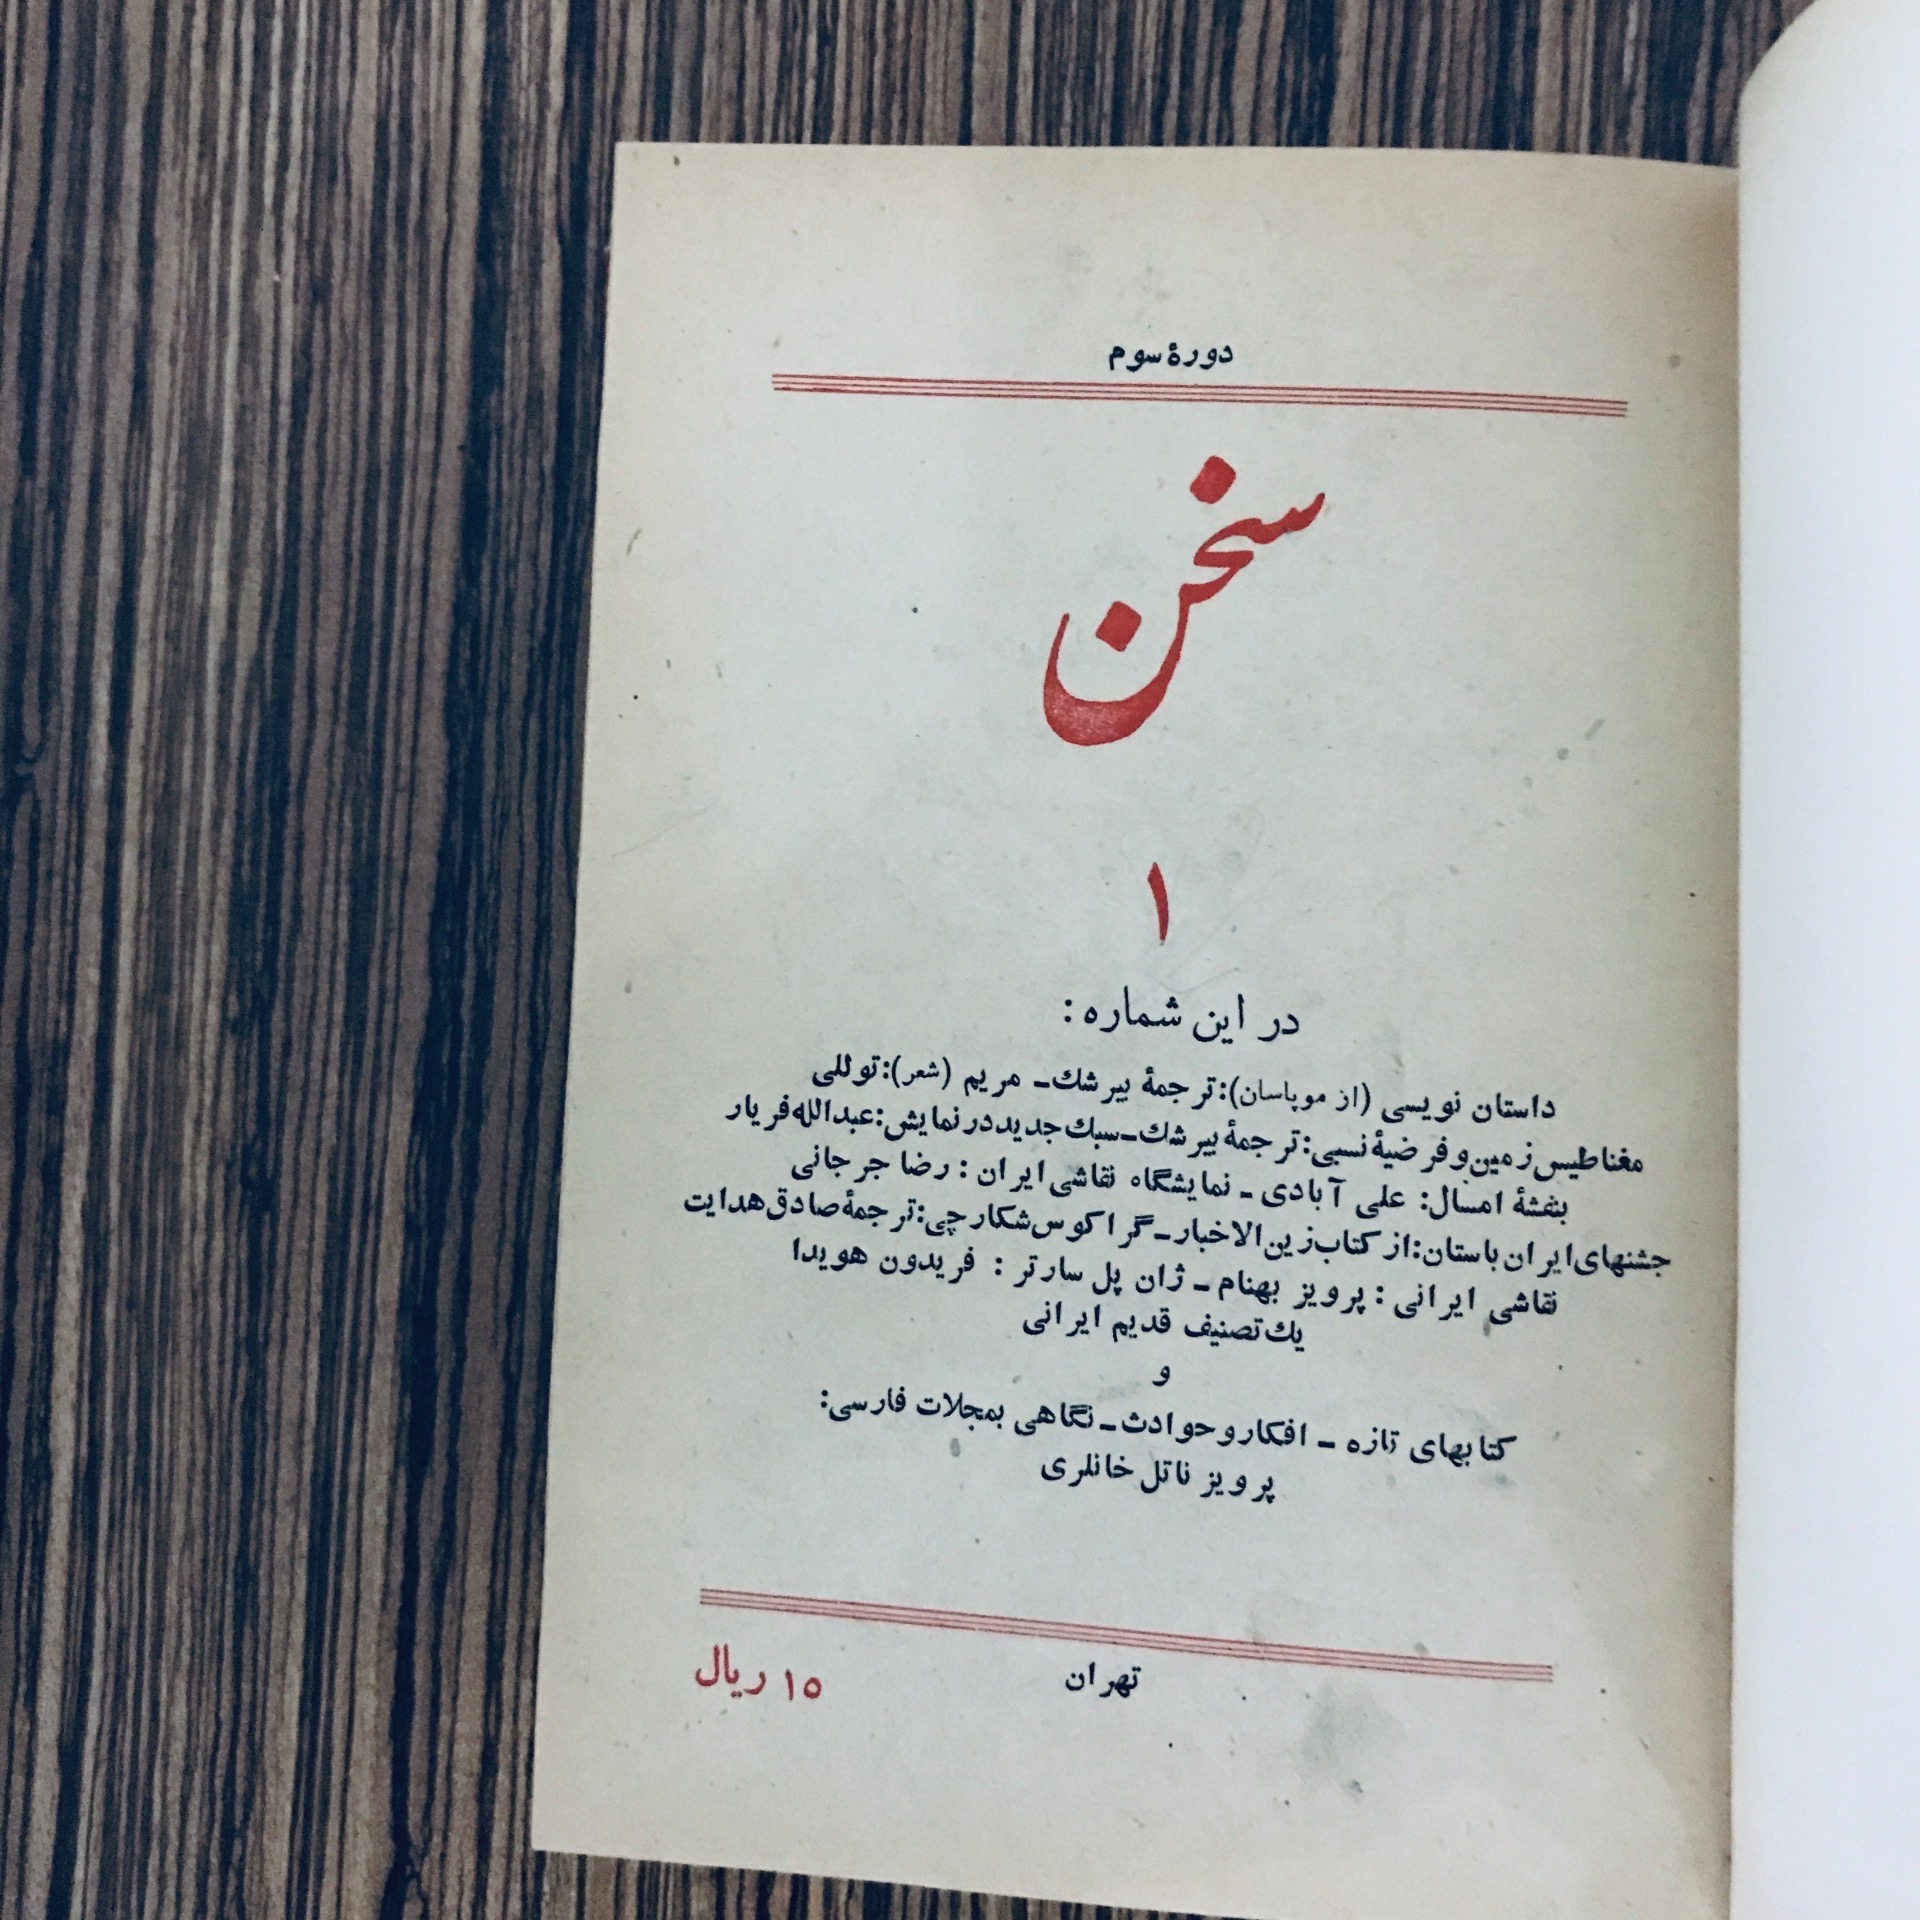 دورهٔ سوم
سخن
۱
در این شماره :
داستان نویسی (از موپاسان): ترجمهٔ بیرشك ـ مریم (شعر): توللی
مغناطیس زمین و فرضیهٔ نسبی: ترجمهٔ بیرشك ـ سبك جدید در نمایش: عبدالله فریار
بنفشهٔ امسال: علی آبادی ـ نمایشگاه نقاشی ایران : رضا جرجانی
جشنهای ایران باستان: از کتاب زین الاخبار ـ گراکوس شکارچی: ترجمهٔ صادق هدایت
نقاشی ایرانی : پرویز بهنام ـ ژان پل سارتر : فریدون هویدا
یك تصنیف قدیم ایرانی
و
کتابهای تازه ـ افکار و حوادث ـ نگاهی بمجلات فارسی:
پرویز ناتل خانلری
تهران
۱۵ ریال